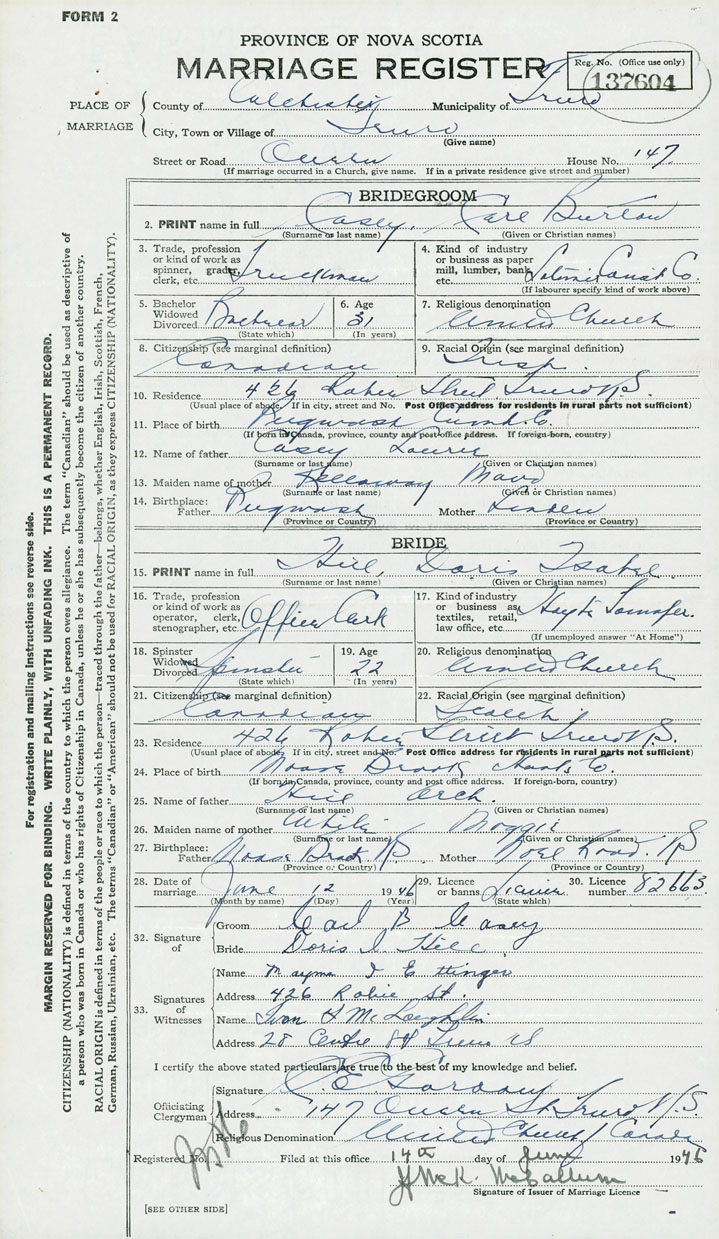 FORM 2
PROVINCE OF NOVA SCOTIA
MARRIAGE REGISTER
Reg. No. (Office use only)
137604
PLACE OF MARRIAGE
County of Colchester Municipality of Truro
City, Town or Village of Truro
(Give name)
Street or Road Queen House No. 147
(If marriage occurred in a Church, give name. If in a private residence give street and number)
BRIDEGROOM
2. PRINT name in full Casey, Carl Burton
(Surname or last name) (Given or Christian names)
3. Trade, profession or kind of work as spinner, grader, clerk, etc. Truckman
4. Kind of industry or business as paper mill, lumber, bank, etc. Const Co.
(If labourer specify kind of work above)
5. Bachelor Widowed Divorced Bachelor
(State which)
6. Age 31
(In years)
7. Religious denomination United Church
8. Citizenship (see marginal definition) Canadian
9. Racial Origin (see marginal definition) Irish
10. Residence 426 Robie Street Truro N.S.
(Usual place of abode. If in city, street and No. Post Office address for residents in rural parts not sufficient)
11. Place of birth Pugwash Cumb. Co.
(If born in Canada, province, county and post office address. If foreign-born, country)
12. Name of father Casey
(Surname or last name) (Given or Christian names)
13. Maiden name of mother
(Surname or last name) (Given or Christian names)
14. Birthplace: Father Pugwash Mother Linden
(Province or Country) (Province or Country)
BRIDE
15. PRINT name in full Hill Doris Isabel
(Surname or last name) (Given or Christian names)
16. Trade, profession or kind of work as operator, clerk, stenographer, etc. Office Clerk
17. Kind of industry or business as textiles, retail, law office, etc.
(If unemployed answer "At Home")
18. Spinster Widowed Divorced Spinster
(State which)
19. Age 22
(In years)
20. Religious denomination United Church
21. Citizenship (see marginal definition) Canadian
22. Racial Origin (see marginal definition) Scotch
23. Residence 426 Robie Street Truro N.S.
(Usual place of abode. If in city, street and No. Post Office address for residents in rural parts not sufficient)
24. Place of birth Moose Brook Hants Co.
(If born in Canada, province, county and post office address. If foreign-born, country)
25. Name of father Hill Arch.
(Surname or last name) (Given or Christian names)
26. Maiden name of mother Maggie
(Surname or last name) (Given or Christian names)
27. Birthplace: Father Moose Brook N.S. Mother Noel Road. N.S
(Province or Country) (Province or Country)
28. Date of marriage June 12 1946
(Month by name) (Day) (Year)
29. Licence or banns License
(State which)
30. Licence number 82663
32. Signature of
Groom Carl B Casey
Bride Doris I Hill
33. Signatures of Witnesses
Name I Ettinger
Address 426 Robie St.
Name Ivan McLaughlin
Address 28 Centre St Truro NS
I certify the above stated particulars are true to the best of my knowledge and belief.
Officiating Clergyman
Signature
Address 147 Queen St. Truro N.S.
Religious Denomination United Church Canada
Registered No.
Filed at this office 14th day of June 1946
McK. McCallum
Signature of Issuer of Marriage Licence
[SEE OTHER SIDE]
For registration and mailing Instructions see reverse side.
MARGIN RESERVED FOR BINDING. WRITE PLAINLY, WITH UNFADING INK. THIS IS A PERMANENT RECORD.
CITIZENSHIP (NATIONALITY) is defined in terms of the country to which the person owes allegiance. The term "Canadian" should be used as descriptive of
a person who was born in Canada or who has rights of Citizenship in Canada, unless he or she has subsequently become the citizen of another country.
RACIAL ORIGIN is defined in terms of the people or race to which the person—traced through the father—belongs, whether English, Irish, Scottish, French,
German, Russian, Ukrainian, etc. The terms "Canadian" or "American" should not be used for RACIAL ORIGIN, as they express CITIZENSHIP (NATIONALITY).